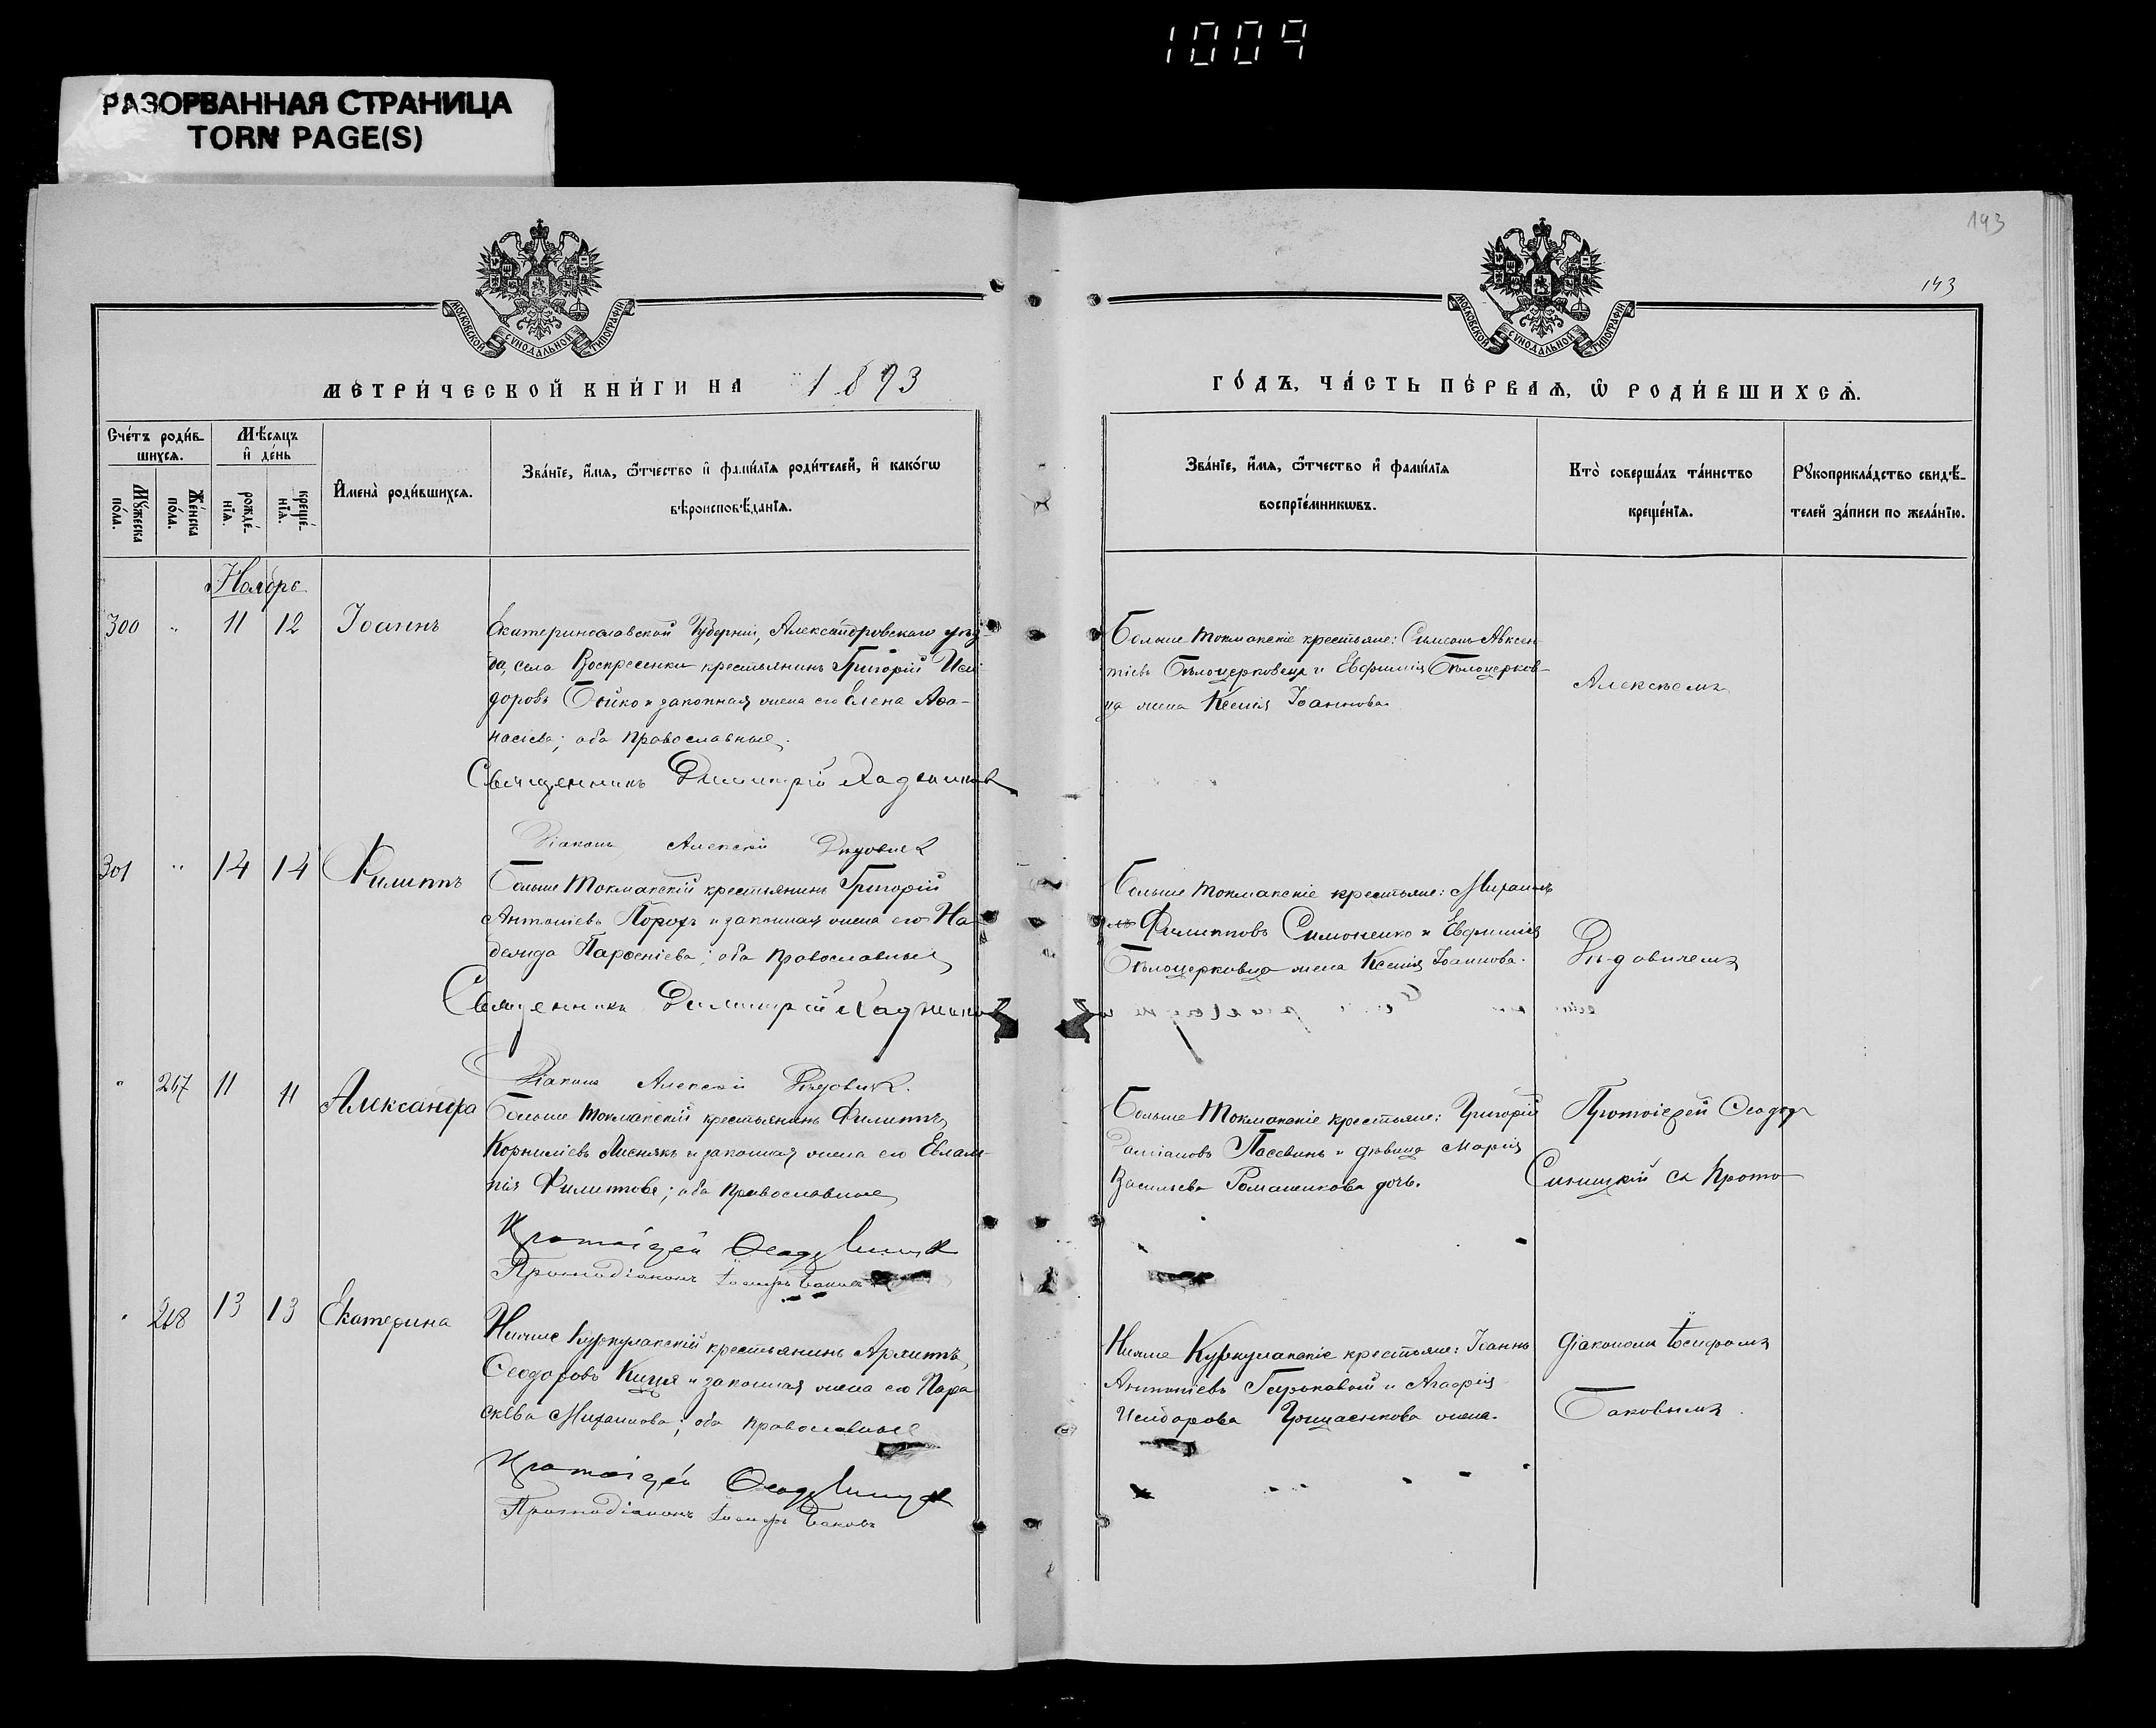 1009
РАЗОРВАННАЯ СТРАНИЦА
TORN PAGE(S)
193
143
МОСКОВСКОЙ СѴНОДАЛЬНОЙ ТИПОГРАФІИ
МОСКОВСКОЙ СѴНОДАЛЬНОЙ ТИПОГРАФІИ
МЕТРИ́ЧЕСКОЙ КНИ́ГИ НА 1893
ГО́ДЪ, ЧА́СТЬ ПЕ́РВАѦ, Ѡ РОДИ́ВШИХСѦ.
Сче́тъ роди́в-
шихсѧ.
Мѣ́сѧцъ
и҆ де́нь
Мꙋ́жеска
по́ла.
Же́нска
по́ла.
рожде́-
нїѧ.
креще́-
нїѧ.
И҆мена̀ роди́вшихсѧ.
Зва́нїе, и҆́мѧ, ѻ҆́тчество и҆ фами́лїѧ роди́телей, и҆ како́гѡ
вѣроисповѣ́данїѧ.
Зва́нїе, и҆́мѧ, ѻ҆́тчество и҆ фами́лїѧ
воспрїе́мникѡвъ.
Кто̀ соверша́лъ та́инство
креще́нїѧ.
Рꙋкоприкла́дство свидѣ́-
телей за́писи по жела́нїю.
Ноябрь
300 " 11 12 Іоаннъ
Екатеринославской Губерніи, Александровскаго уѣз-
да, села Воскресенки крестьянинъ Григорій Иси-
доровъ Бойко и законная жена его Елена Аѳа-
насіева; оба православные.
Священникъ Димитрій
Діаконъ Алексій Дѣдовичъ
Больше Токмакскіе крестьяне: Симеонъ Авксен-
тіевъ Бѣлоцерковецъ и Евфимія Бѣлоцерков-
ца жена Ксенія Іоаннова.
Алексѣемъ
301 " 14 14 Филиппъ
Больше Токмакскій крестьянинъ Григорій
Антоніевъ Порохъ и законная жена его На-
дежда Парѳеніева; оба православные
Священникъ Димитрій
Діаконъ Алексій Дѣдовичъ.
Больше Токмакскіе крестьяне: Михаилъ
Филипповъ Симоненко и Евфимія
Бѣлоцерковца жена Ксенія Іоаннова.
Дѣдовичемъ
" 267 11 11 Александра
Больше Токмакскій крестьянинъ Филиппъ
Корниліевъ Лиснякъ и законная жена его Евлам-
пія Филиппова; оба православные
Протоіерей Ѳеодоръ Синицкій
Протодіаконъ Іосифъ Баковъ
Больше Токмакскіе крестьяне: Григорій
Даміановъ Пасевинъ и дѣвица Марія
Васильева Романенкова дочь.
Протоіерей Ѳеодоръ
Синицкій съ Прото-
" 268 13 13 Екатерина
Нижне Куркулакскій крестьянинъ Архиппъ
Ѳеодоровъ Куця и законная жена его Пара-
скева Михаилова; оба православные
Протоіерей Ѳеодоръ Синицкій
Протодіаконъ Іосифъ Баковъ
Нижне Куркулакскіе крестьяне: Іоаннъ
Антоніевъ и Агафія
Исидорова Грищенкова жена.
діакономъ Іосифомъ
Баковымъ.